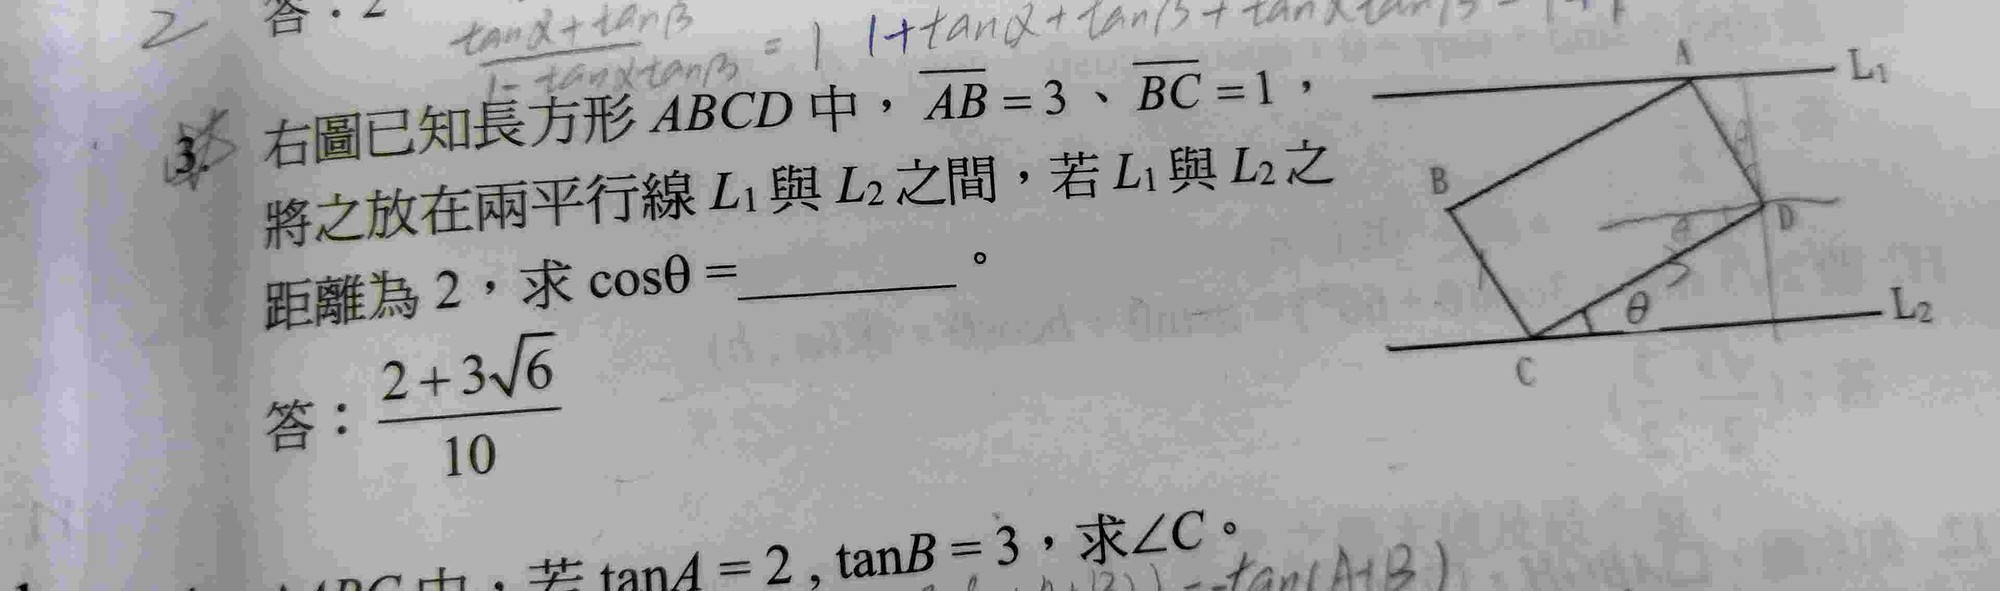 2 答：2
tanα+tanβ / 1-tanαtanβ = 1 1+tanα+tanβ+tanαtanβ=1+1
3. 右圖已知長方形 ABCD 中，AB = 3、BC = 1，
將之放在兩平行線 L1 與 L2 之間，若 L1 與 L2 之
距離為 2，求 cosθ =________。
答：(2+3√6)/10
A L1
B
D
θ
θ
θ L2
C
中，若 tanA = 2 , tanB = 3，求∠C。
= -tan(A+B)